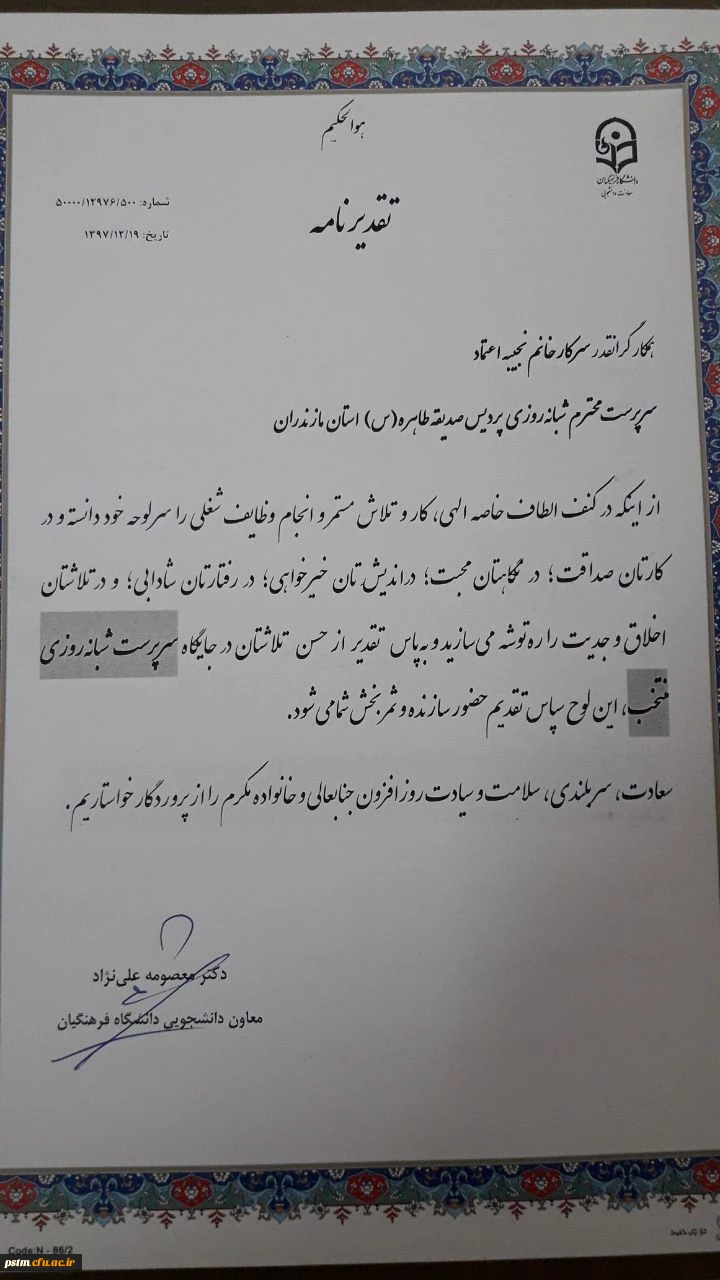 هوالحکیم
دانشگاه فرهنگیان
معاونت دانشجویی
شماره: ۵۰۰۰۰/۱۲۹۷۶/۵۰۰
تاریخ: ۱۳۹۷/۱۲/۱۹
تقدیرنامه
همکار گرانقدر سرکار خانم نجیبه اعتماد
سرپرست محترم شبانه روزی پردیس صدیقه طاهره (س) استان مازندران
از اینکه در کنف الطاف خاصه الهی، کار و تلاش مستمر و انجام وظایف شغلی را سرلوحه خود دانسته و در
کارتان صداقت؛ در نگاهتان محبت؛ در اندیش تان خیرخواهی؛ در رفتارتان شادابی؛ و در تلاشتان
اخلاق و جدیت را ره توشه می سازید و به پاس تقدیر از حسن تلاشتان در جایگاه سرپرست شبانه روزی
منتخب، این لوح سپاس تقدیم حضور سازنده و ثمربخش شما می شود.
سعادت، سربلندی، سلامت و سیادت روزافزون جنابعالی و خانواده مکرم را از پروردگار خواستاریم.
دکتر معصومه علی‌نژاد
معاون دانشجویی دانشگاه فرهنگیان
Code:N - 86/2
pstm.cfu.ac.ir